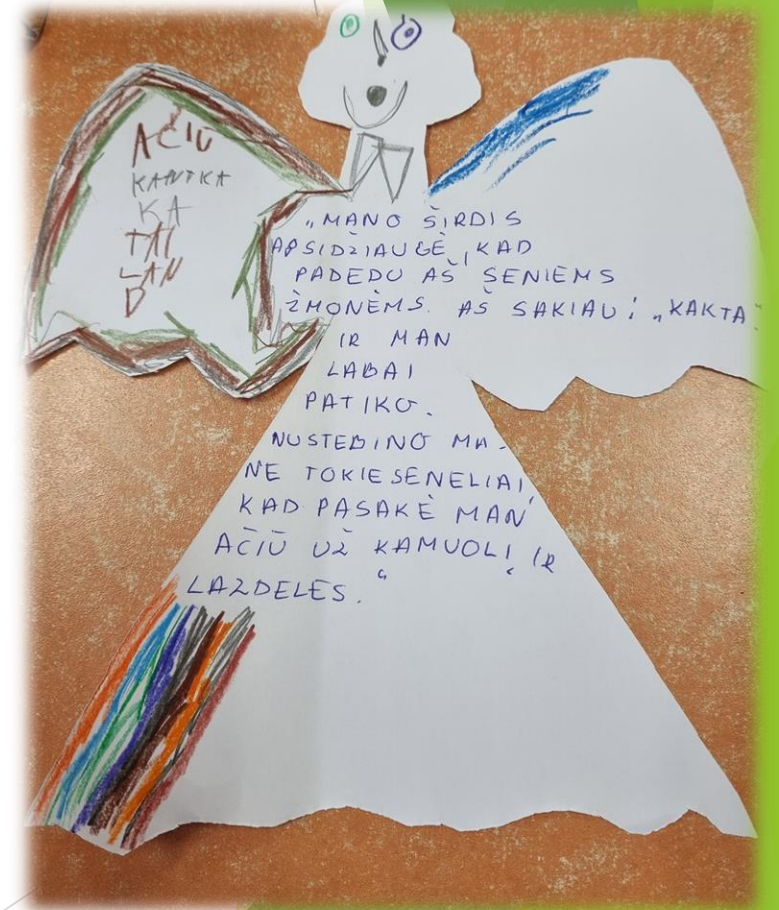 AČIŪ
KANTKA
KA
TAI
LAN
D
„MANO ŠIRDIS
APSIDŽIAUGĖ, KAD
PADEDU AŠ SENIEMS
ŽMONĖMS. AŠ SAKIAU: „KAKTA"
IR MAN
LABAI
PATIKO.
NUSTEBINO MA-
NE TOKIE SENELIAI,
KAD PASAKĖ MAN
AČIŪ UŽ KAMUOLĮ IR
LAZDELES."